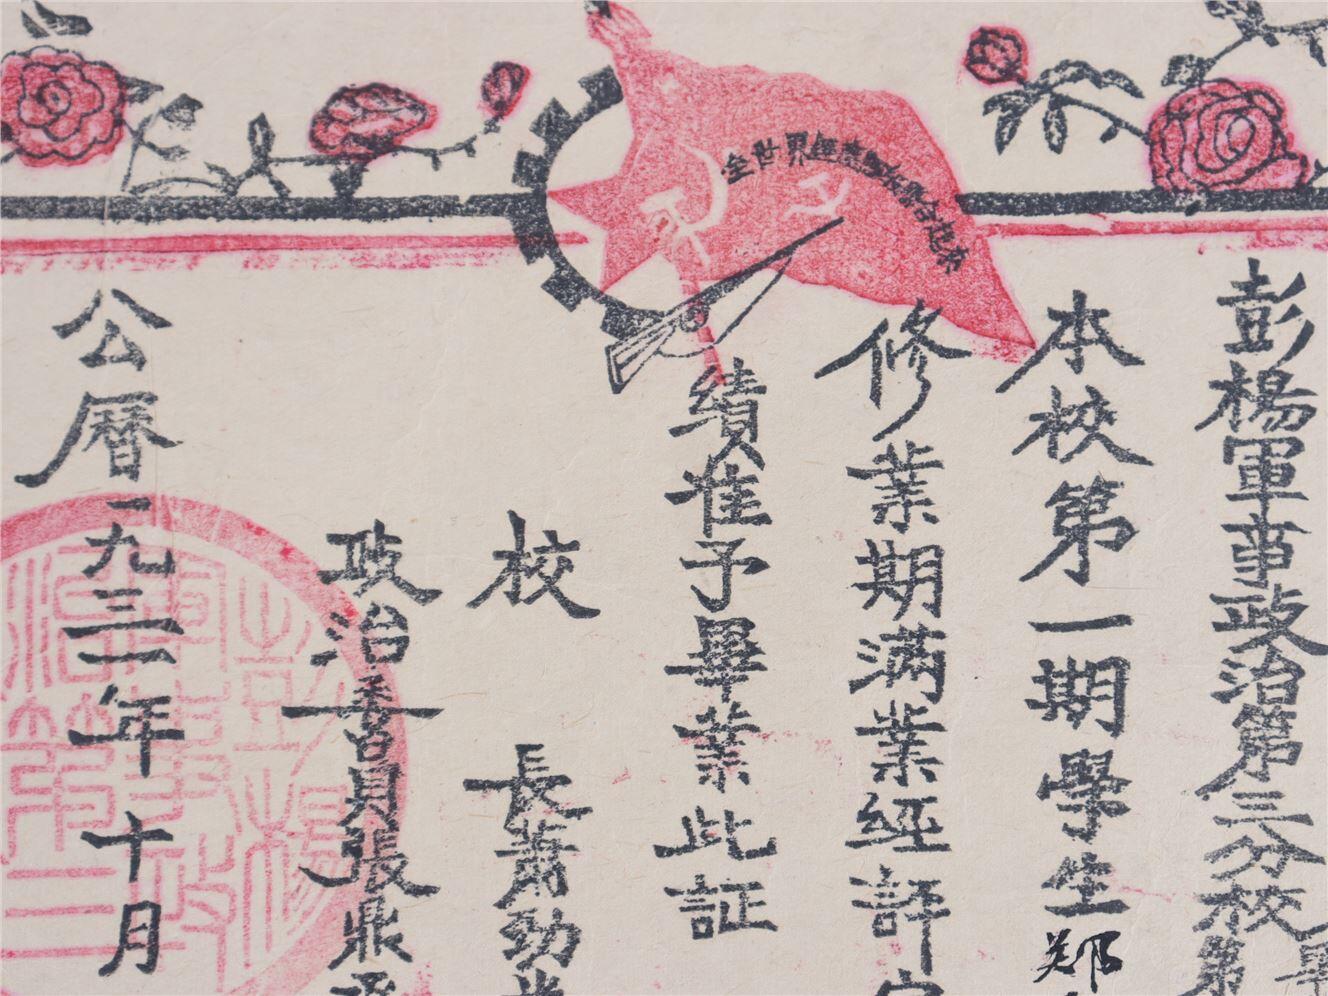 全世界無產階級聯合起來
彭楊軍事政治第三分校第
畢
本校第一期學生鄭
修業期滿業經評定
績准予畢業此証
校 長蕭勁光
政治委員張鼎丞
公曆一九三一年十月